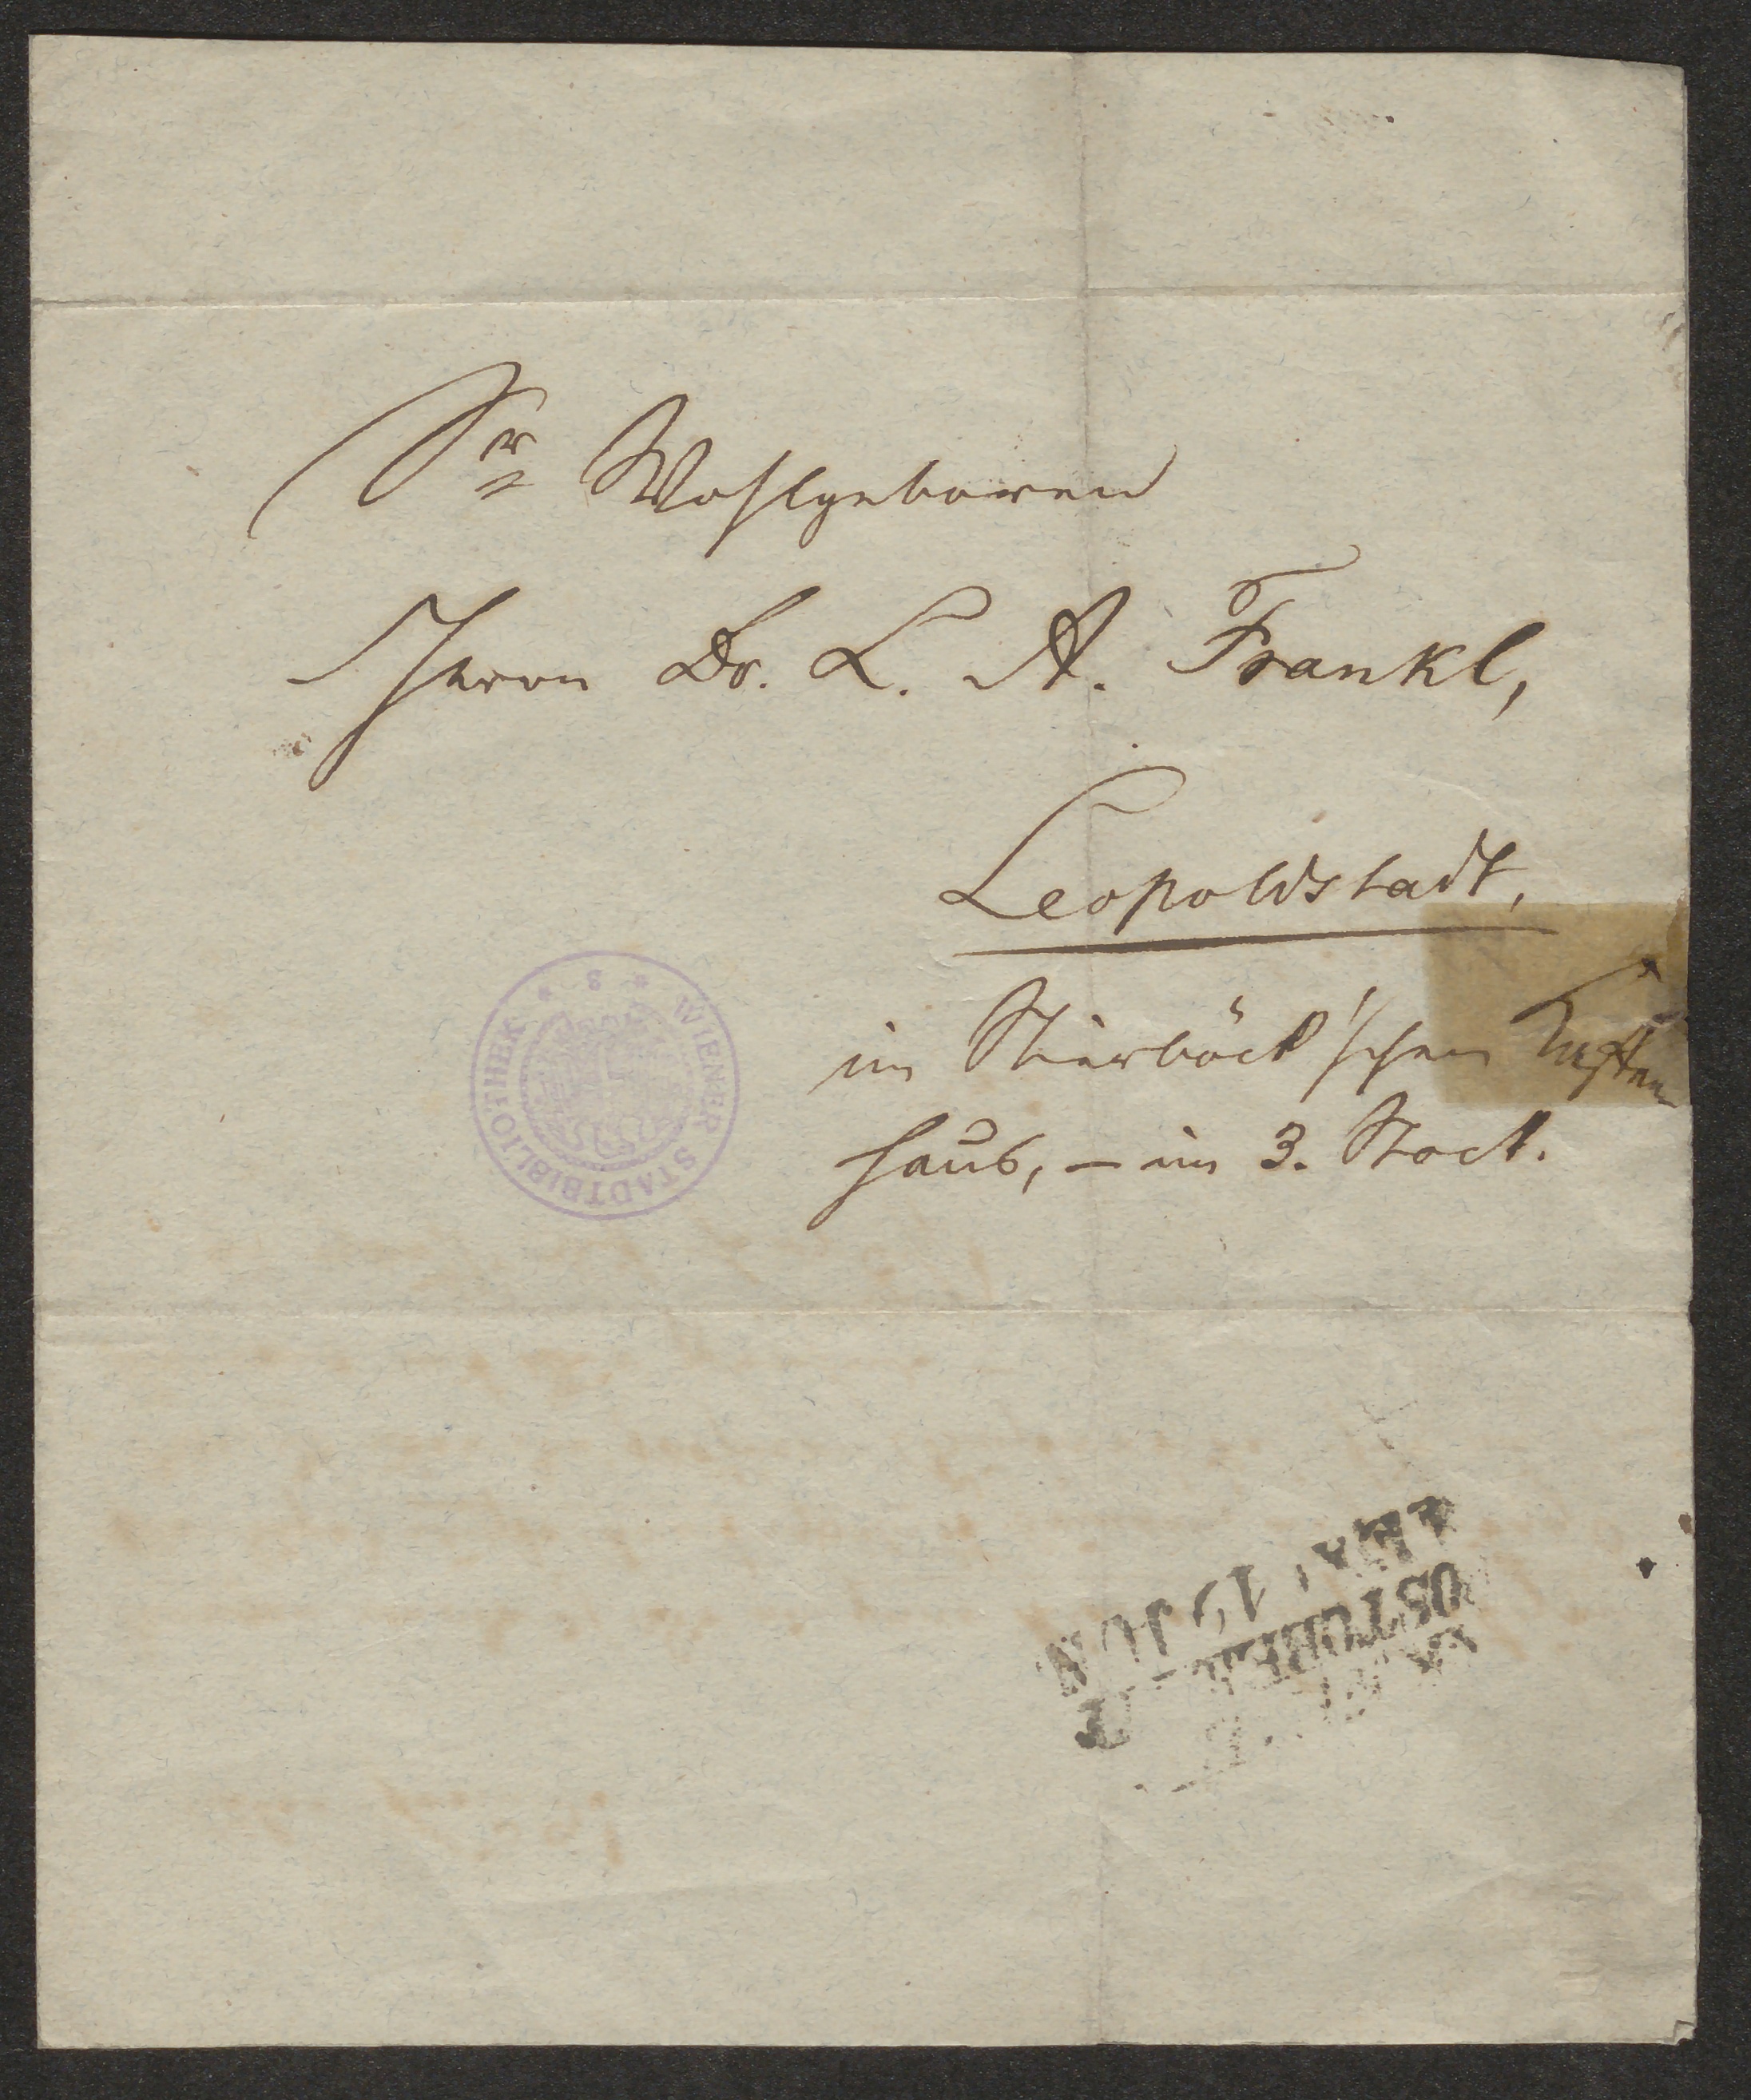 Sr Wohlgeboren
Herrn Dr. L. A. Frankl,
Leopoldstadt,
im Stierböck'schen Kaffee
haus, – im 3. Stock.
WIENER STADTBIBLIOTHEK
* 8 *
19 JUN